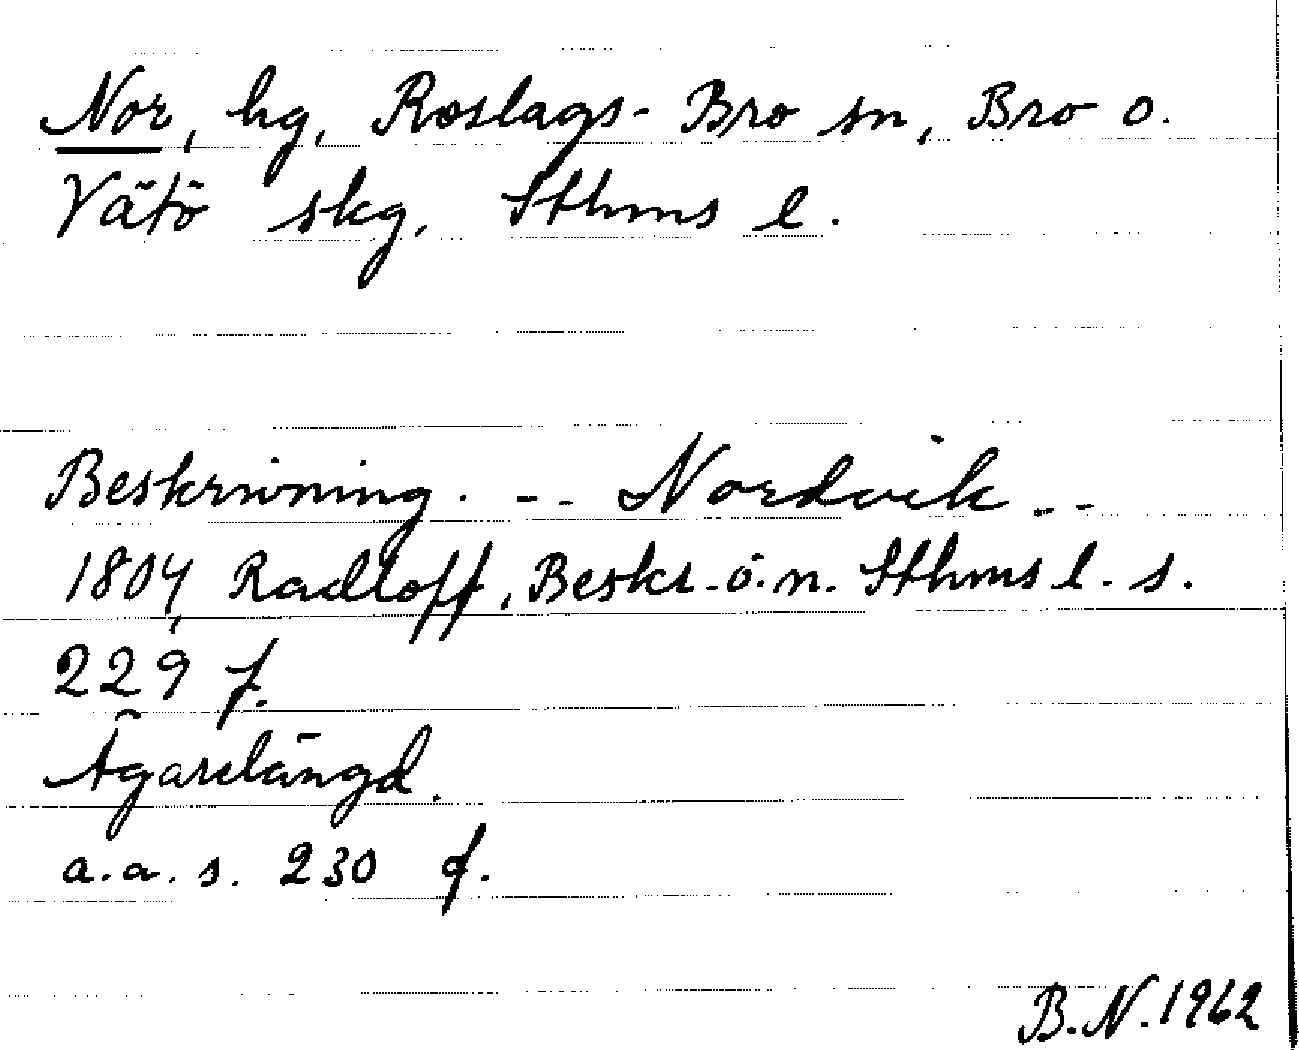 Nor, hg, Roslags-Bro sn, Bro o.
Vätö skg, Sthms l.
Beskrivning. -- Nordvik --
1804, Radloff, Beskr. ö. n. Sthms l. s.
229 f.
Ägarelängd.
a.a. s. 230 f.
B.N. 1962